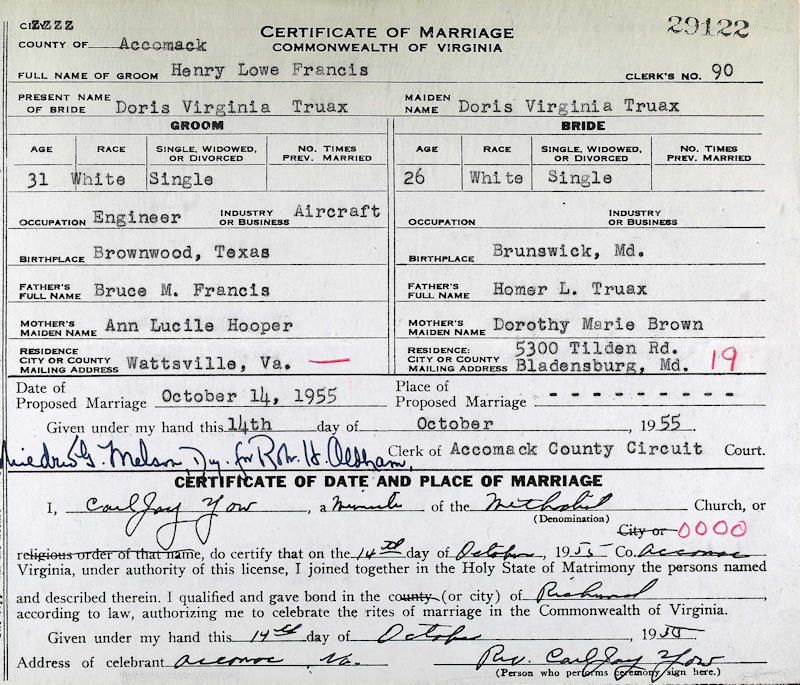 CITY ZZZZ
CERTIFICATE OF MARRIAGE
29122
COUNTY OF Accomack
COMMONWEALTH OF VIRGINIA
FULL NAME OF GROOM Henry Lowe Francis CLERK'S NO. 90
PRESENT NAME OF BRIDE Doris Virginia Truax MAIDEN NAME Doris Virginia Truax
GROOM BRIDE
AGE RACE SINGLE, WIDOWED, OR DIVORCED NO. TIMES PREV. MARRIED AGE RACE SINGLE, WIDOWED, OR DIVORCED NO. TIMES PREV. MARRIED
31 White Single 26 White Single
OCCUPATION Engineer INDUSTRY OR BUSINESS Aircraft OCCUPATION INDUSTRY OR BUSINESS
BIRTHPLACE Brownwood, Texas BIRTHPLACE Brunswick, Md.
FATHER'S FULL NAME Bruce M. Francis FATHER'S FULL NAME Homer L. Truax
MOTHER'S MAIDEN NAME Ann Lucile Hooper MOTHER'S MAIDEN NAME Dorothy Marie Brown
RESIDENCE CITY OR COUNTY MAILING ADDRESS Wattsville, Va. — RESIDENCE: CITY OR COUNTY MAILING ADDRESS 5300 Tilden Rd. Bladensburg, Md. 19
Date of Proposed Marriage October 14, 1955 Place of Proposed Marriage - - - - - - - - -
Given under my hand this 14th day of October, 1955.
G. Melson, Dy. for Robt. H. Oldham, Clerk of Accomack County Circuit Court.
CERTIFICATE OF DATE AND PLACE OF MARRIAGE
I, Carl Jay Yow, a Minister of the Methodist Church, or
(Denomination)
City or 0000
religious order of that name, do certify that on the 14th day of October, 1955 Co. Accomac
Virginia, under authority of this license, I joined together in the Holy State of Matrimony the persons named
and described therein. I qualified and gave bond in the county (or city) of Richmond,
according to law, authorizing me to celebrate the rites of marriage in the Commonwealth of Virginia.
Given under my hand this 14th day of October, 1955
Address of celebrant Accomac, Va. Rev. Carl Jay Yow
(Person who performs ceremony sign here.)